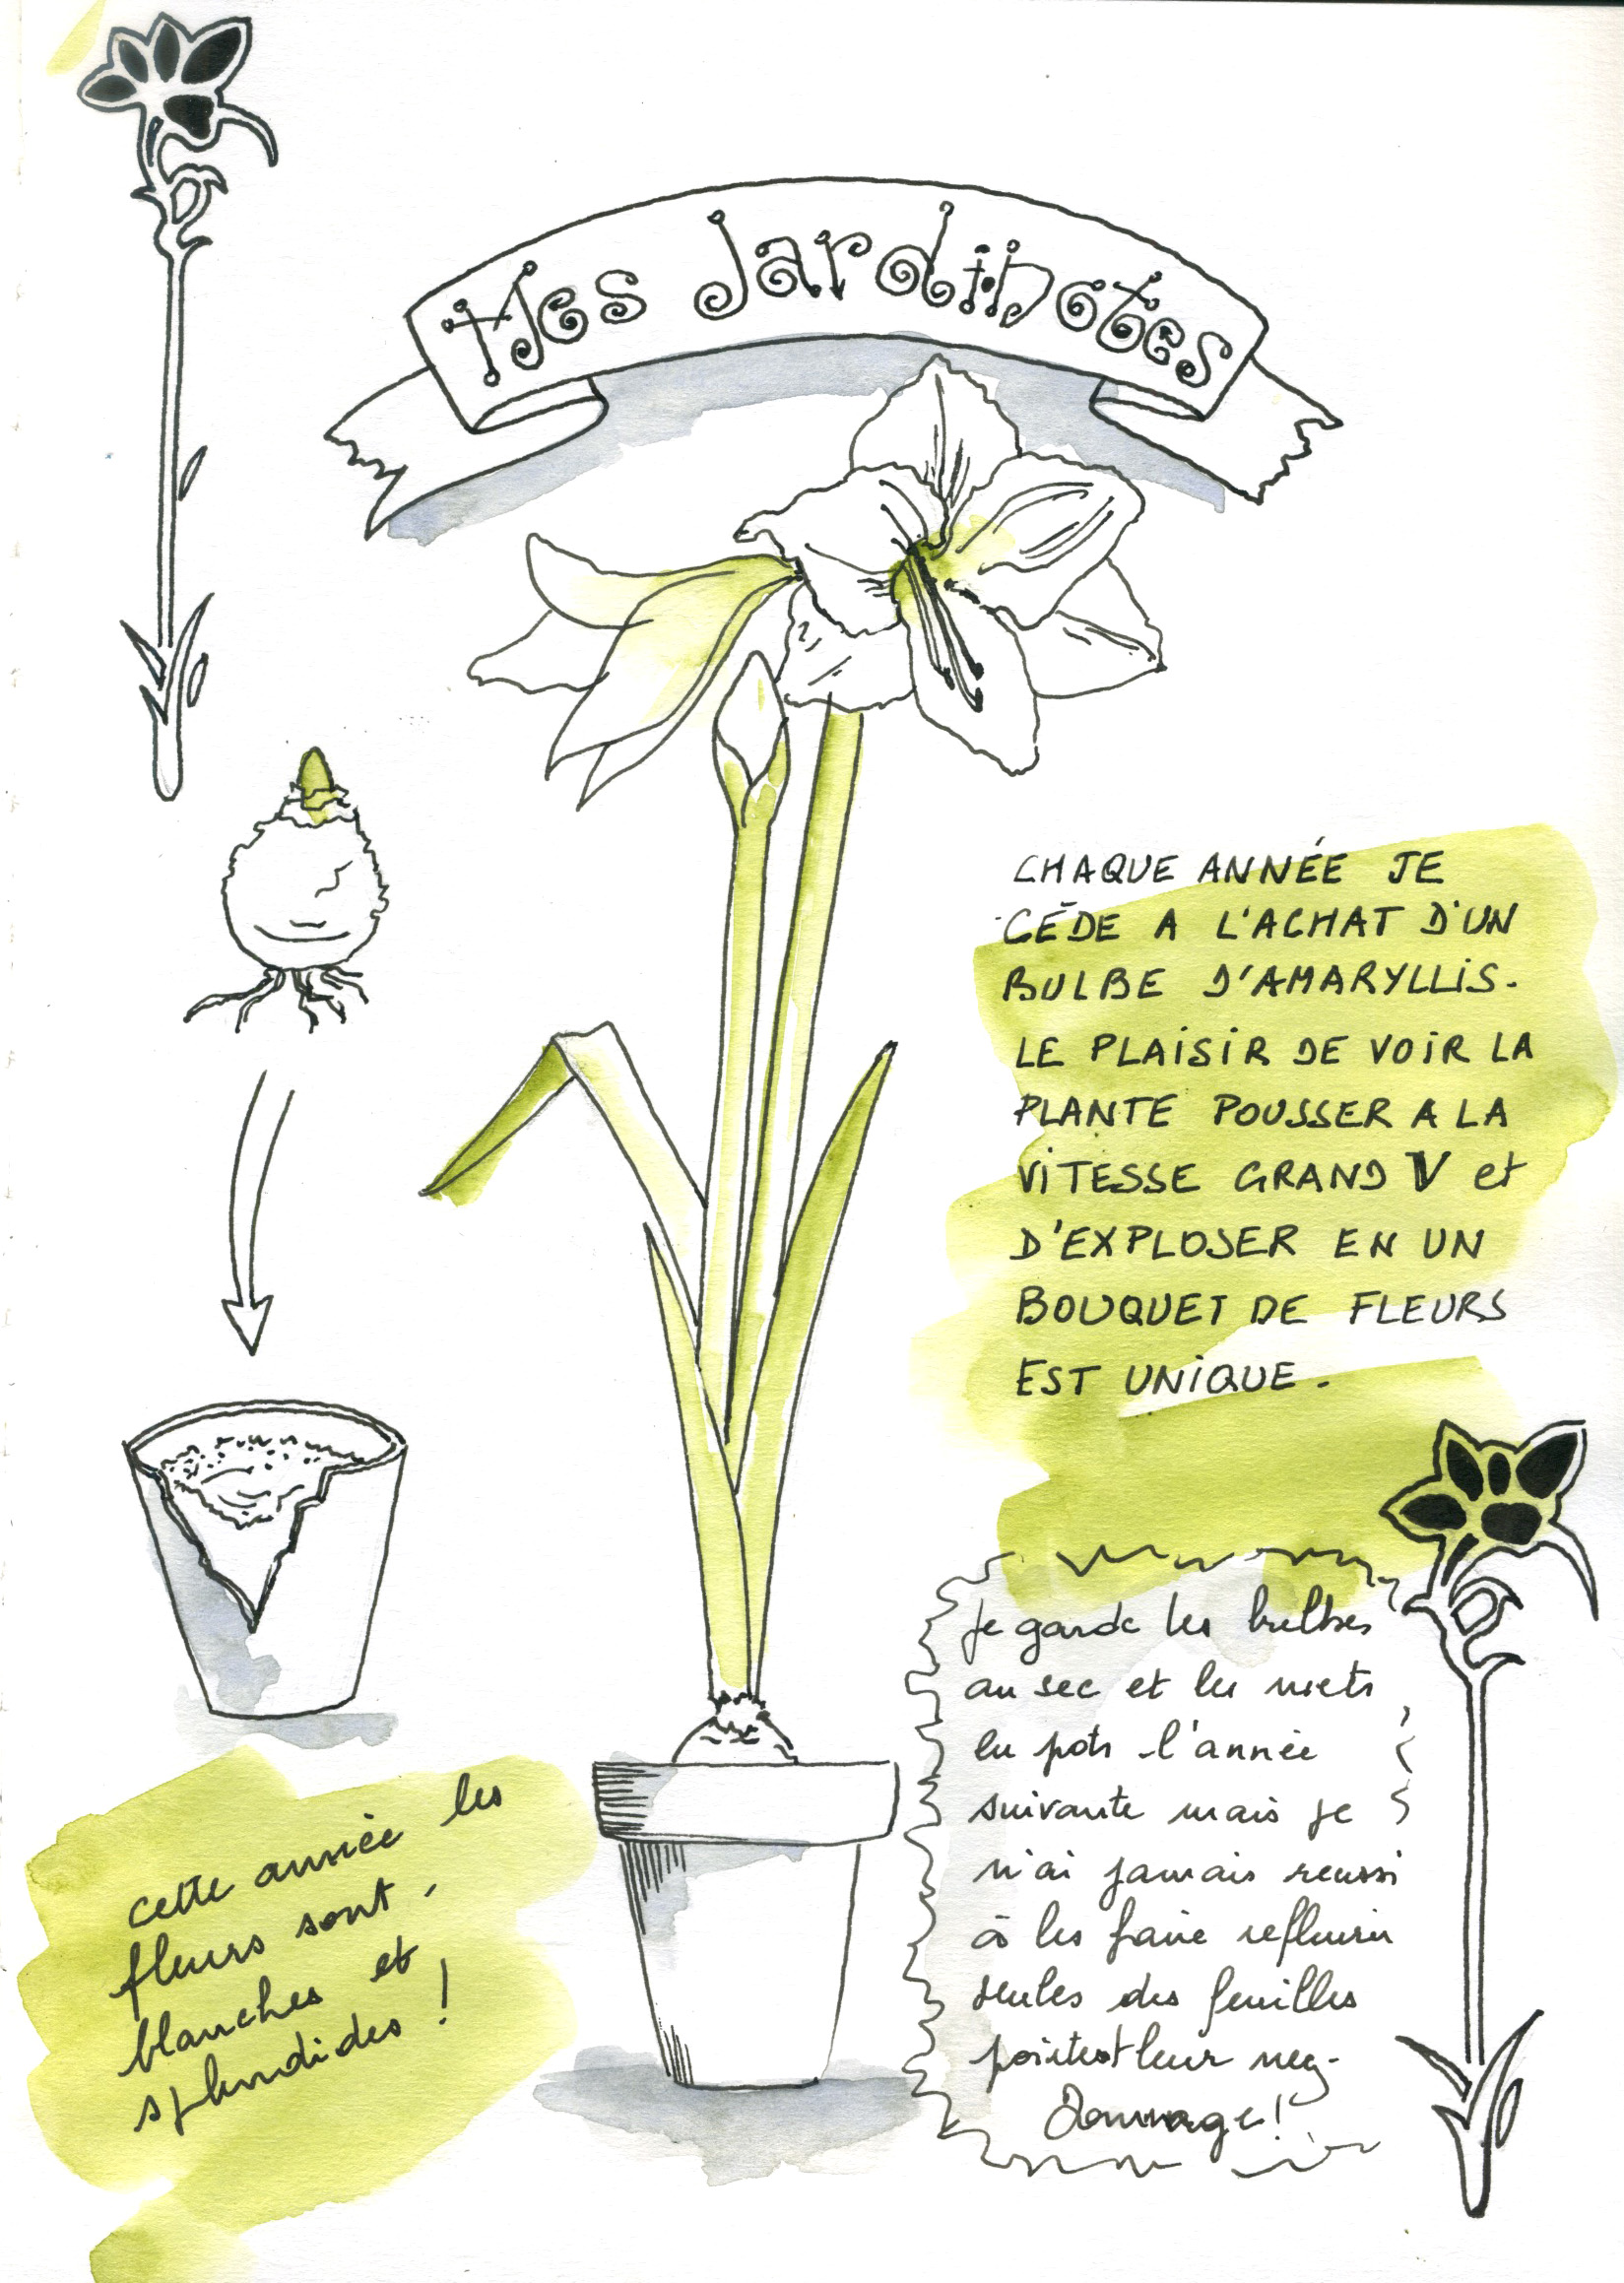 Mes Jardinotes
CHAQUE ANNÉE JE
CÉDE A L'ACHAT D'UN
BULBE D'AMARYLLIS.
LE PLAISIR DE VOIR LA
PLANTE POUSSER A LA
VITESSE GRAND V et
D'EXPLOSER EN UN
BOUQUET DE FLEURS
EST UNIQUE.
je garde les bulbes
au sec et les mets
en pots l'année
suivante mais je
n'ai jamais reussi
à les faire refleurir
seules des feuilles
pointent leur nez.
Dommage!
cette année les
fleurs sont
blanches et
splendides !